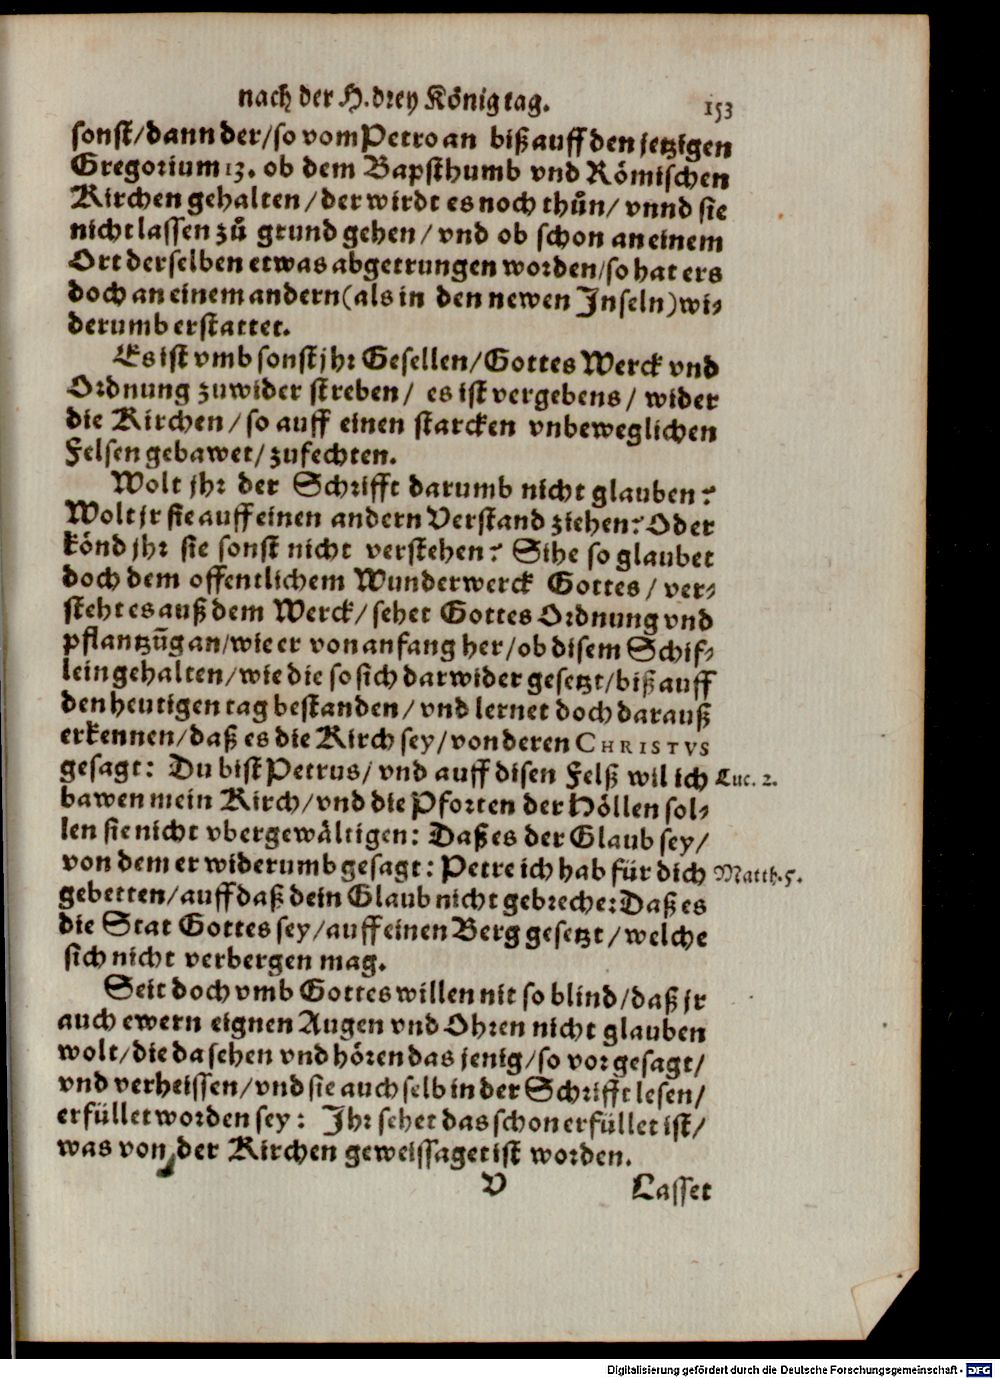 nach der H. drey König tag.
153
sonst/dann der/so vom Petro an biß auff den jetzigen
Gregorium 13. ob dem Bapsthumb vnd Römischen
Kirchen gehalten/der wirdt es noch thůn/vnnd sie
nicht lassen zů grund gehen/vnd ob schon an einem
Ort derselben etwas abgetrungen worden/so hat ers
doch an einem andern (als in den newen Inseln) wi-
derumb erstattet.
Es ist vmb sonst jhr Gesellen/Gottes Werck vnd
Ordnung zuwider streben/ es ist vergebens/ wider
die Kirchen/so auff einen starcken vnbeweglichen
Felsen gebawet/zufechten.
Wolt jhr der Schrifft darumb nicht glauben?
Wolt jr sie auff einen andern Verstand ziehen? Oder
könd jhr sie sonst nicht verstehen? Sihe so glaubet
doch dem offentlichem Wunderwerck Gottes/ ver-
steht es auß dem Werck/sehet Gottes Ordnung vnd
pflantzũg an/wie er von anfang her/ob disem Schif-
lein gehalten/wie die so sich darwider gesetzt/biß auff
den heutigen tag bestanden/vnd lernet doch darauß
erkennen/daß es die Kirch sey/von deren CHRISTVS
gesagt: Du bist Petrus/vnd auff disen Felß wil ich
Luc. 2.
bawen mein Kirch/vnd die Pforten der Höllen sol-
len sie nicht vbergewältigen: Daß es der Glaub sey/
von dem er widerumb gesagt: Petre ich hab für dich
Matth. 5.
gebetten/auff daß dein Glaub nicht gebreche: Daß es
die Stat Gottes sey/auff einen Berg gesetzt/welche
sich nicht verbergen mag.
Seit doch vmb Gottes willen nit so blind/daß jr
auch ewern eignen Augen vnd Ohren nicht glauben
wolt/die da sehen vnd hören das jenig/so vor gesagt/
vnd verheissen/vnd sie auch selb in der Schrifft lesen/
erfüllet worden sey: Ihr sehet das schon erfüllet ist/
was von der Kirchen geweissaget ist worden.
V
Lasset
Digitalisierung gefördert durch die Deutsche Forschungsgemeinschaft - DFG